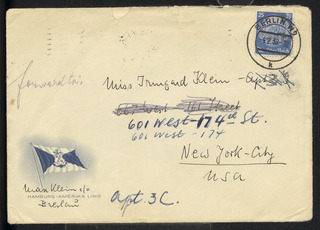 25
BERLIN
k
forward to:
Miss Irmgard Klein - Apt 3C
601 West - 174th St.
601 West - 174
New York-City
USA
Max Klein c/o
HAMBURG-AMERIKA LINIE
Breslau
Apt. 3C.